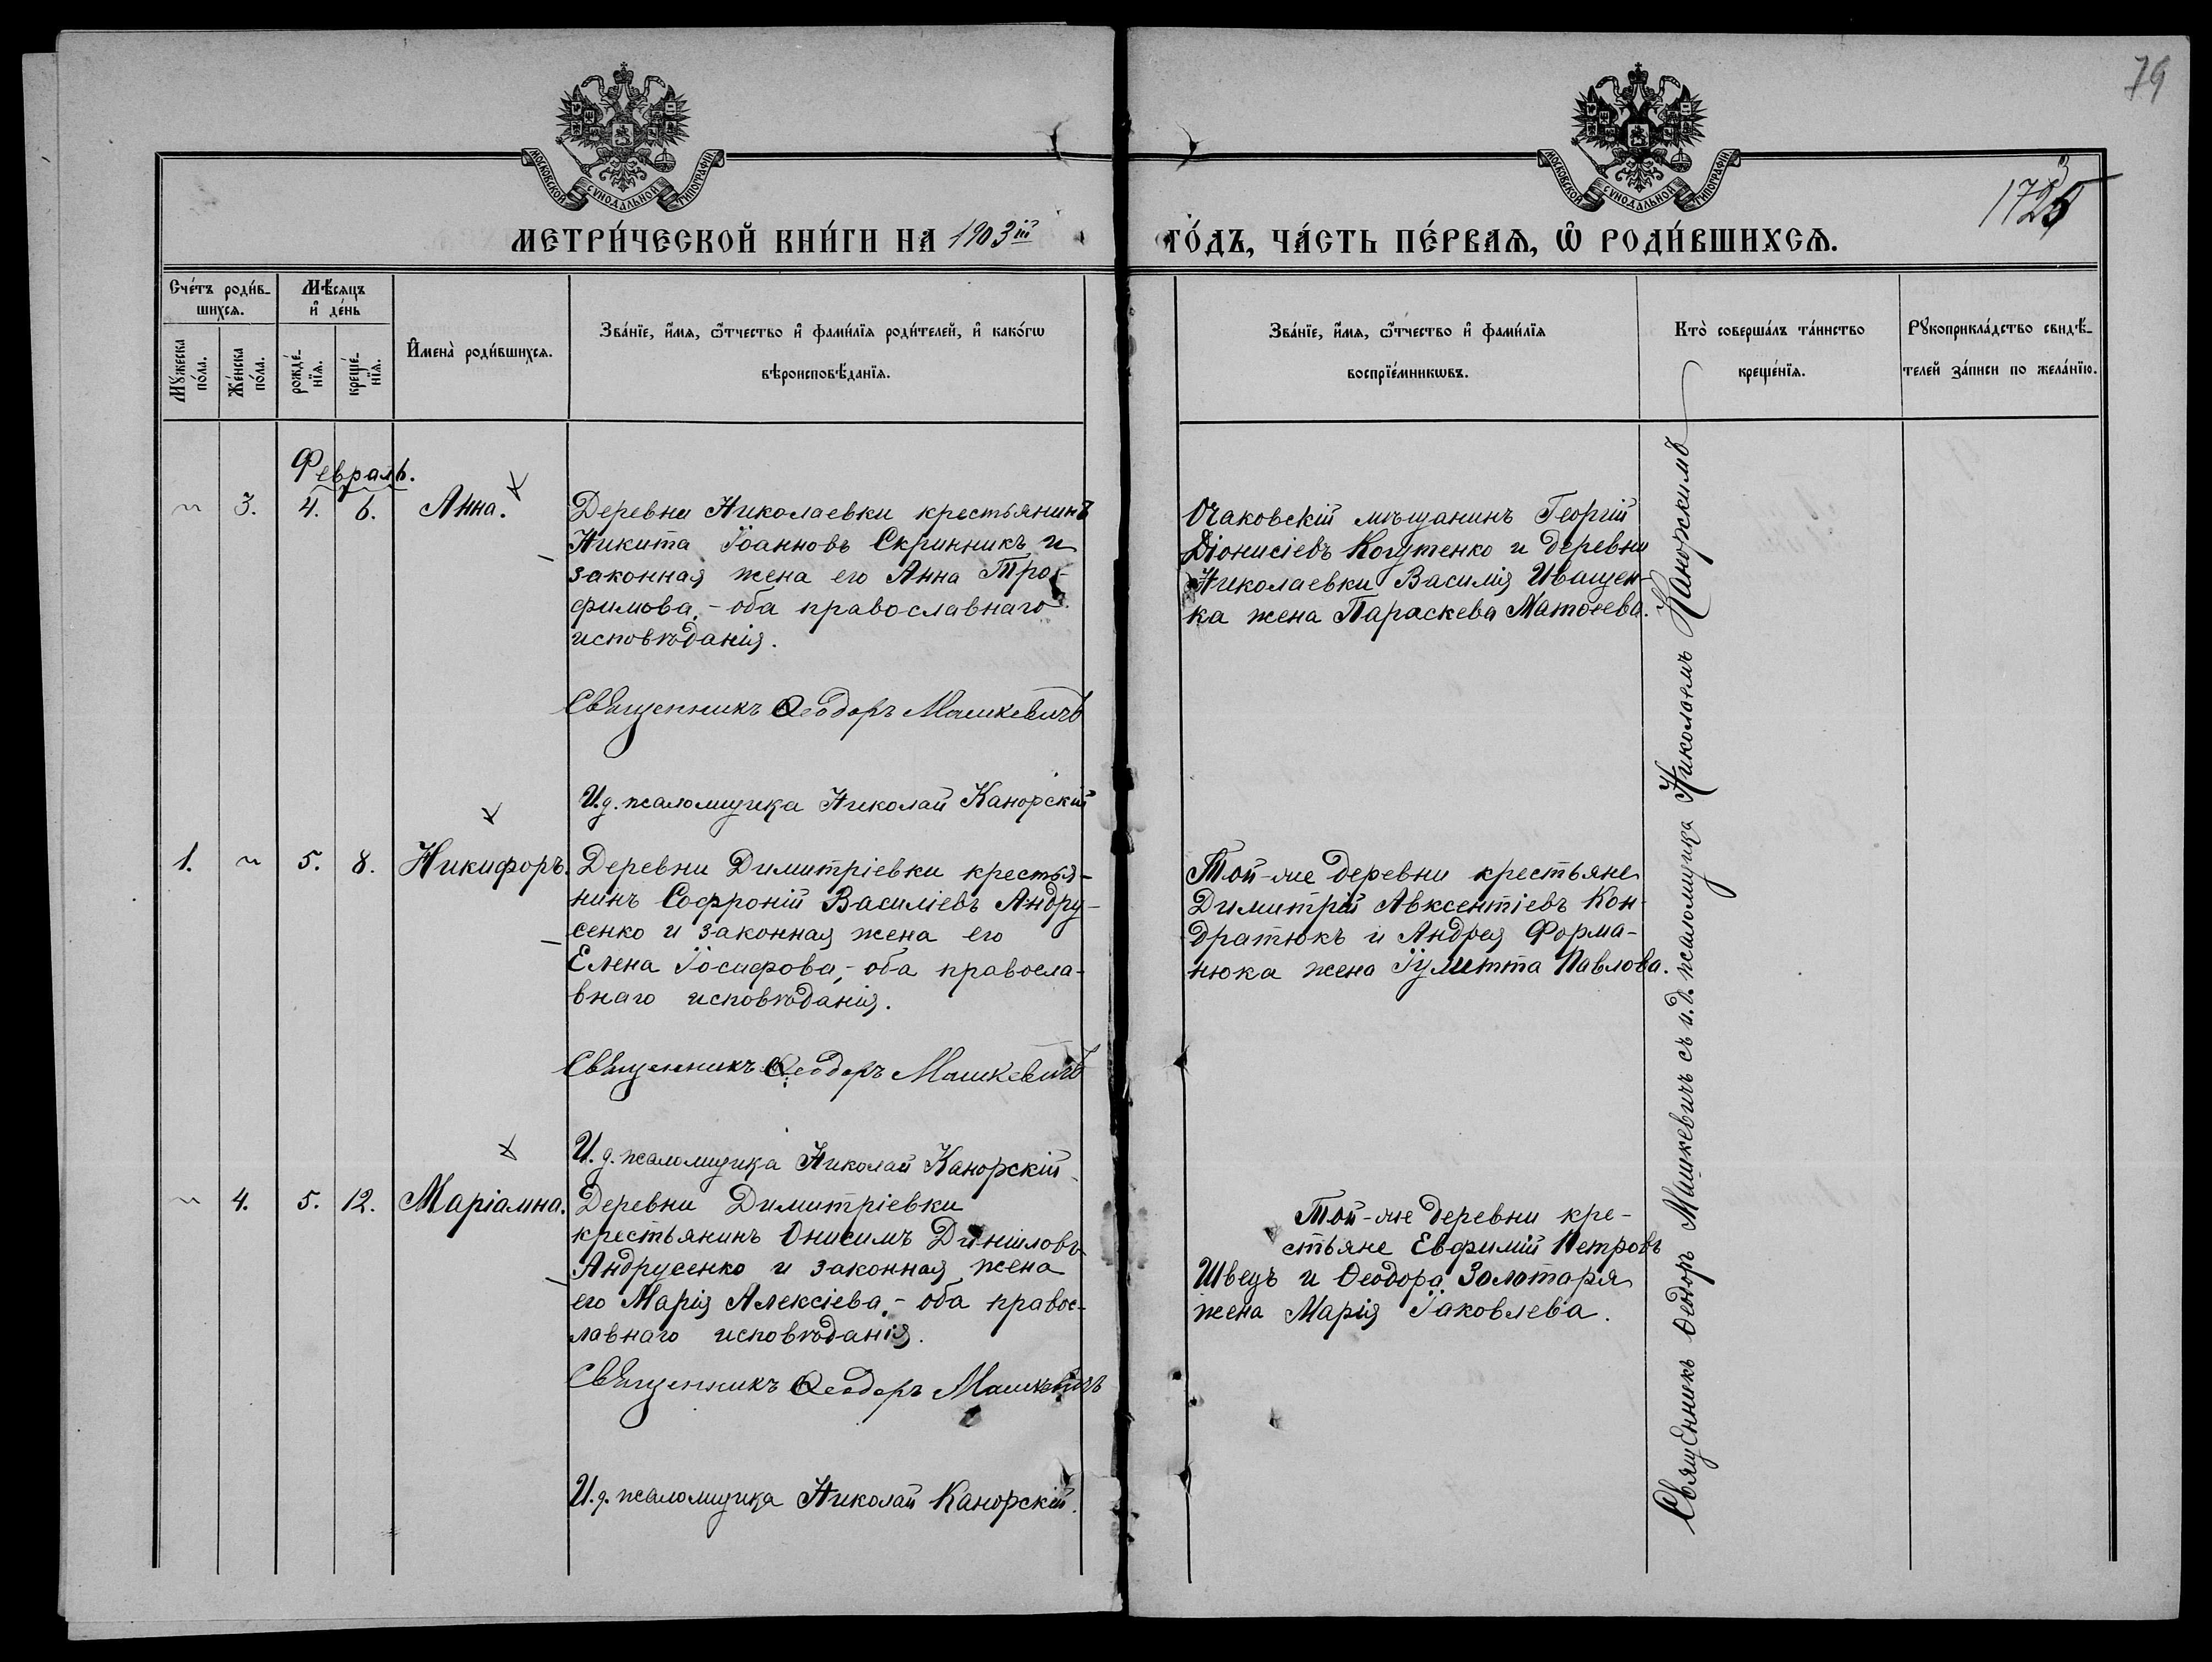 79
1725
3
МОСКОВСКОЙ СѴНОДАЛЬНОЙ ТИПОГРАФІИ
МОСКОВСКОЙ СѴНОДАЛЬНОЙ ТИПОГРАФІИ
МЕТРИ́ЧЕСКОЙ КНИ́ГИ НА 1903 ій
ГО́ДЪ, ЧА́СТЬ ПЕ́РВАѦ, Ѽ РОДИ́ВШИХСѦ.
Сче́тъ роди́в-
шихсѧ.
Мꙋ́жеска по́ла.
Же́нска по́ла.
Мѣ́сяцъ
и҆ де́нь
рожде́-
нїѧ.
креще́-
нїѧ.
И҆мена̀ роди́вшихсѧ.
Зва́нїе, и҆́мѧ, ѻ҆́тчество и҆ фами́лїѧ роди́телей, и҆ како́гѡ
вѣроисповѣ́данїѧ.
Зва́нїе, и҆́мѧ, ѻ҆́тчество и҆ фами́лїѧ
воспрїе́мникѡвъ.
Кто̀ соверша́лъ та́инство
креще́нїѧ.
Рꙋкоприкла́дство свидѣ́-
телей за́писи по жела́нїю.
Февраль.
3. 4. 6. Анна.
Деревни Николаевки крестьянинъ
Никита Іоанновъ Скринникъ и
законная жена его Анна Тро-
фимова, - оба православнаго
исповѣданія.
Священникъ Ѳеодоръ Машкевичъ
И.д. псаломщика Николай Канорскій
Очаковскій мѣщанинъ Георгій
Діонисіевъ Когутенко и деревни
Николаевки Василія Иващен-
ка жена Параскева Матѳеева.
1. 5. 8. Никифоръ.
Деревни Димитріевки крестья-
нинъ Софроній Василіевъ Андру-
сенко и законная жена его
Елена Іосифова, - оба правосла-
внаго исповѣданія.
Священникъ Ѳеодоръ Машкевичъ
И.д. псаломщика Николай Канорскій
Той-же деревни крестьяне
Димитрій Авксентіевъ Кон-
дратюкъ и Андрея Форма-
нюка жена Іулитта Павлова.
4. 5. 12. Маріамна.
Деревни Димитріевки
крестьянинъ Онисимъ Даніиловъ
Андрусенко и законная жена
его Марія Алексіева, - оба правос-
лавнаго исповѣданія.
Священникъ Ѳеодоръ Машкевичъ
И.д. псаломщика Николай Канорскій.
Той-же деревни кре-
стьяне Евфимій Петровъ
Швецъ и Ѳеодора Золотаря
жена Марія Іаковлева.
Священникъ Ѳеодоръ Машкевичъ съ и.д. псаломщика Николаемъ Канорскимъ